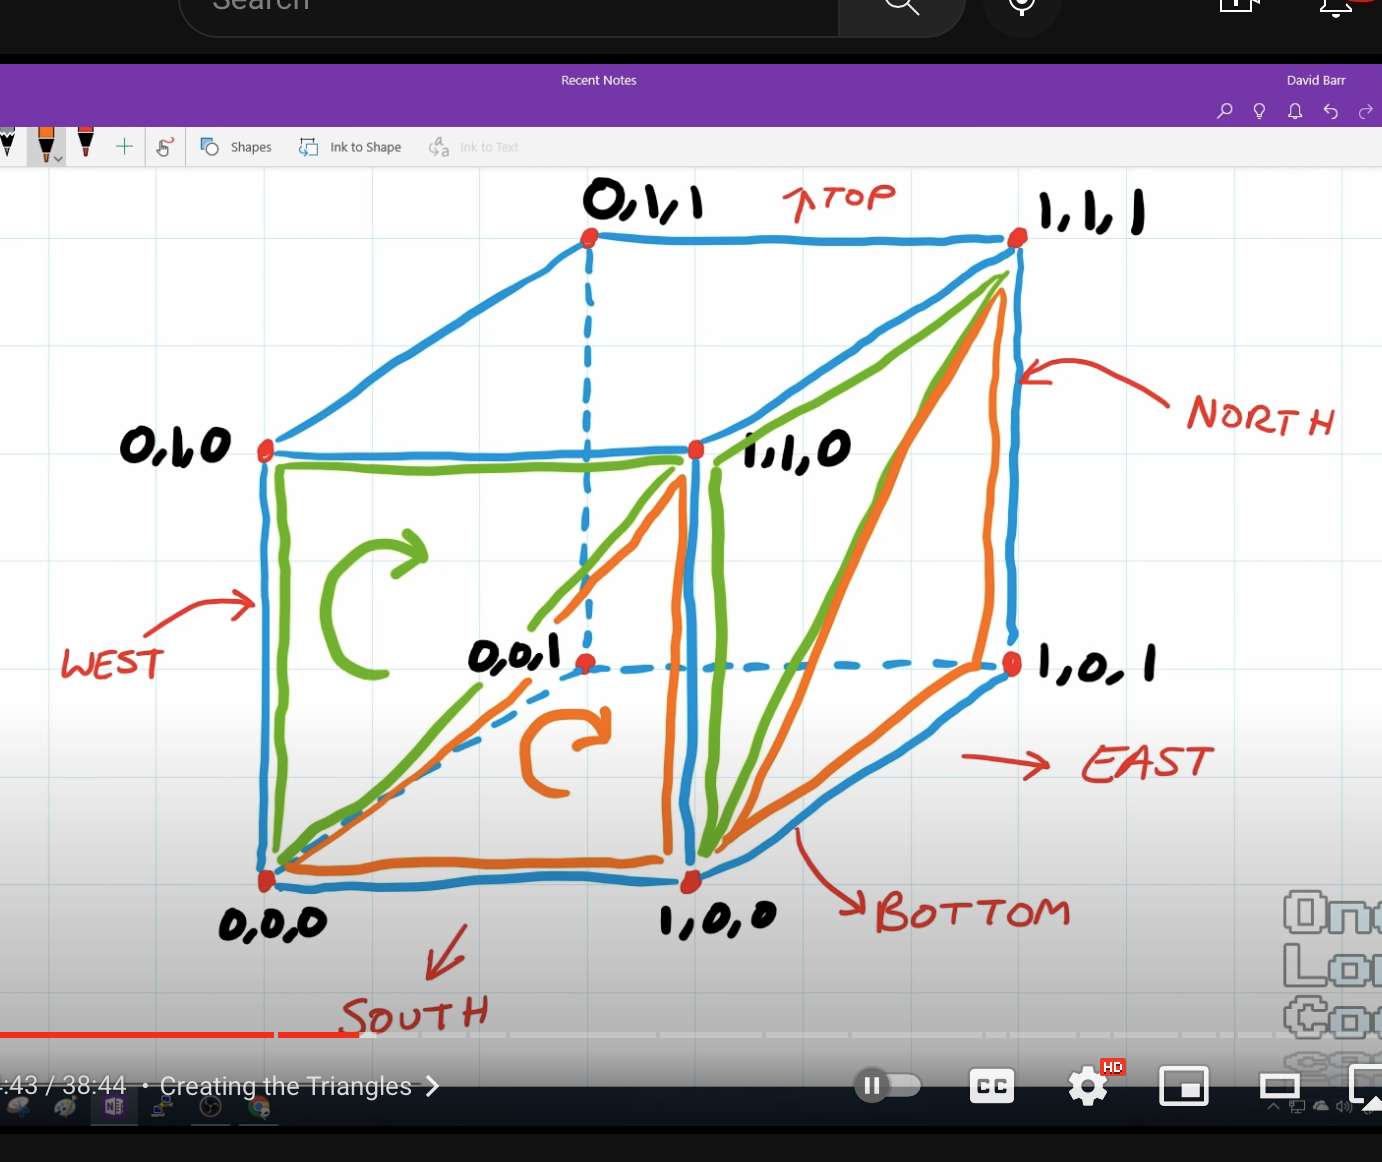 Search
Recent Notes
David Barr
Shapes
Ink to Shape
Ink to Text
0,1,1
↑TOP
1,1,1
NORTH
0,1,0
1,1,0
WEST
0,0,1
1,0,1
EAST
BOTTOM
0,0,0
1,0,0
SOUTH
:43 / 38:44 • Creating the Triangles
CC
HD